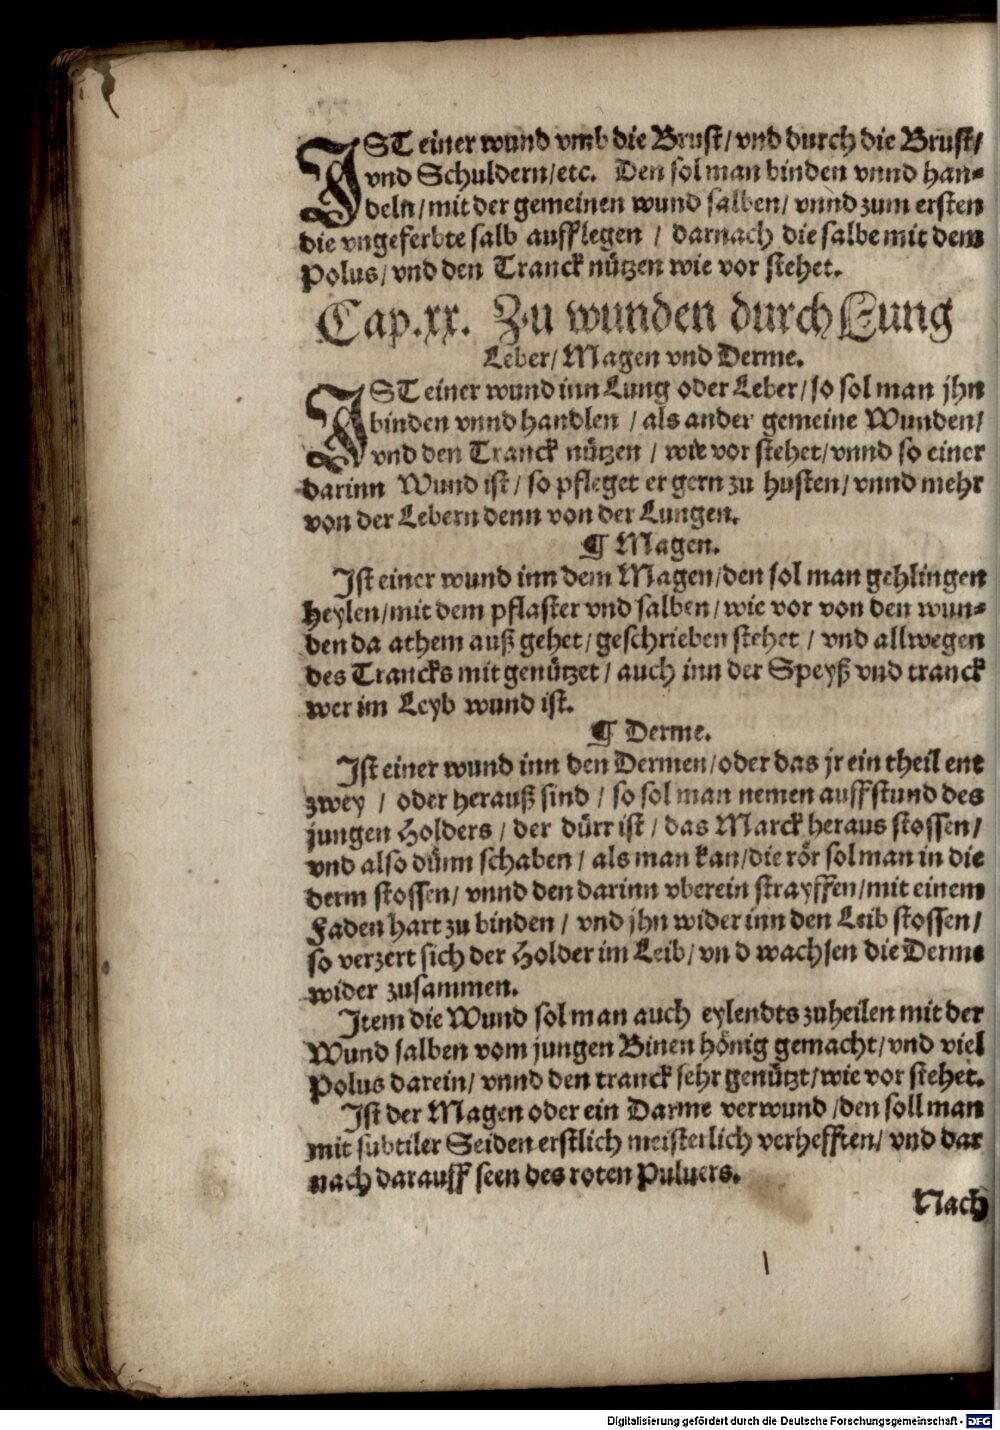 IST einer wund vmb die Brust/ vnd durch die Brust/
vnd Schuldern/etc. Den sol man binden vnnd han⸗
deln/ mit der gemeinen wund salben/ vnnd zum ersten
die vngeferbte salb aufflegen / darnach die salbe mit dem
Polus/ vnd den Tranck nützen wie vor stehet.
Cap. xx. Zu wunden durch Lung
Leber/ Magen vnd Derme.
IST einer wund inn Lung oder Leber/ so sol man jhn
binden vnnd handlen / als ander gemeine Wunden/
vnd den Tranck nützen / wie vor stehet/ vnnd so einer
darinn Wund ist/ so pfleget er gern zu husten/ vnnd mehr
von der Lebern denn von der Lungen.
¶ Magen.
Ist einer wund inn dem Magen/den sol man gehlingen
heylen/mit dem pflaster vnd salben/ wie vor von den wun⸗
den da athem auß gehet/ geschrieben stehet / vnd allwegen
des Trancks mit genützet / auch inn der Speyß vnd tranck
wer im Leyb wund ist.
¶ Derme.
Ist einer wund inn den Dermen/oder das jr ein theil ent
zwey / oder herauß sind / so sol man nemen auffstund des
jungen Holders / der dürr ist / das Marck heraus stossen/
vnd also dünn schaben / als man kan/die rör sol man in die
derm stossen/ vnnd den darinn vberein strayffen/mit einem
Faden hart zu binden / vnd jhn wider inn den Leib stossen/
so verzert sich der Holder im Leib/ vn d wachsen die Derme
wider zusammen.
Item die Wund sol man auch eylendts zuheilen mit der
Wund salben vom jungen Binen hönig gemacht/ vnd viel
Polus darein/ vnnd den tranck sehr genützt/wie vor stehet.
Ist der Magen oder ein Darme verwund /den soll man
mit subtiler Seiden erstlich meisterlich verhefften/ vnd dar
nach darauff seen des roten Puluers.
Nach
Digitalisierung gefördert durch die Deutsche Forschungsgemeinschaft - DFG